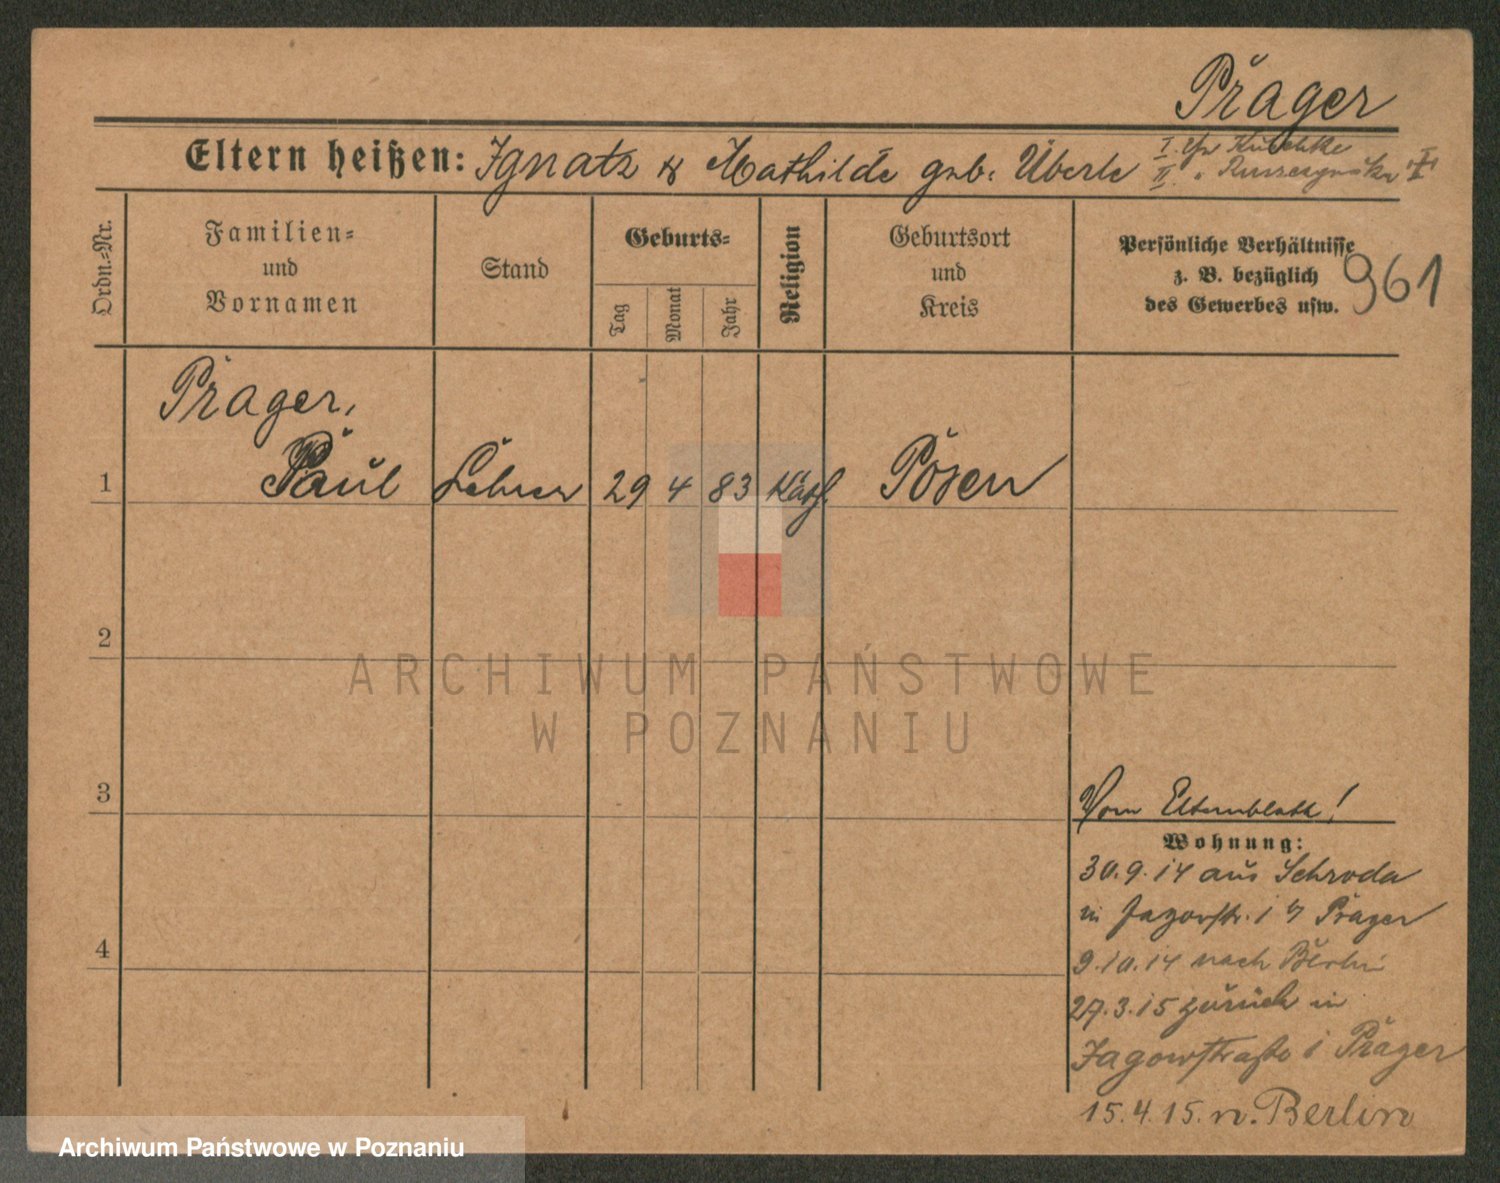 Präger
Eltern heißen: Ignatz & Mathilde geb. Überle I. Ehe Kutschke
II. "
Ordn.-Nr.
Familien-
und
Vornamen
Stand
Geburts-
Tag
Monat
Jahr
Religion
Geburtsort
und
Kreis
Persönliche Verhältnisse
z. B. bezüglich
des Gewerbes usw.
961
Präger,
1 Paul Lehrer 29 4 83 Kath. Posen
2
3
4
Vom Elternblatt!
Wohnung:
30.9.14 aus Schroda
in Jagowstr. 1 b Präger
9.10.14 nach Berlin
27.3.15 zurück in
Jagowstraße 1 Präger
15.4.15. n. Berlin
ARCHIWUM PAŃSTWOWE
W POZNANIU
Archiwum Państwowe w Poznaniu